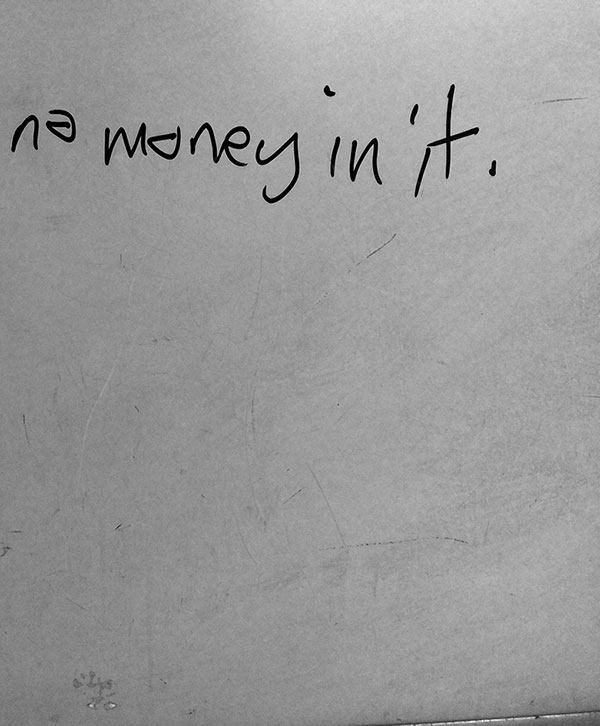 no money in it.